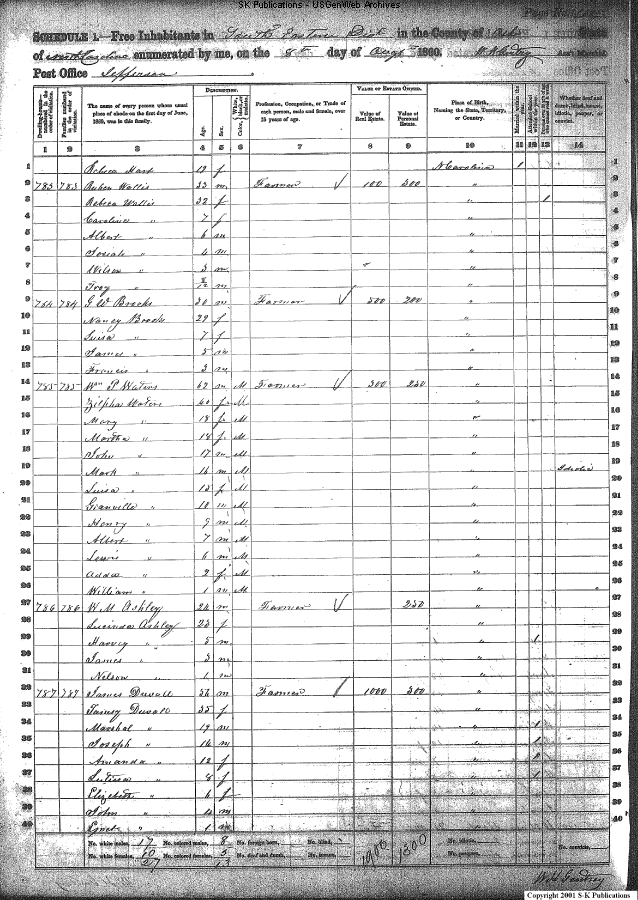 S-K Publications - USGenWeb Archives
SCHEDULE 1.—Free Inhabitants in South Eastern Dist in the County of Ashe State
of North Carolina enumerated by me, on the 8th day of Augst 1860.
Post Office Jefferson
Dwelling-houses numbered in the order of visitation.
Families numbered in the order of visitation.
The name of every person whose usual place of abode on the first day of June, 1860, was in this family.
DESCRIPTION.
Age.
Sex.
Profession, Occupation, or Trade of each person, male and female, over 15 years of age.
VALUE OF ESTATE OWNED.
Value of Real Estate.
Value of Personal Estate.
Place of Birth, Naming the State, Territory, or Country.
Whether deaf and dumb, blind, insane, idiotic, pauper, or convict.
1 2 3 4 5 6 7 8 9 10 11 12 13 14
1 Hart f N Carolina 1
2 783 783 Ruben Wallis 33 m Farmer 100 300 "
3 Rebeca Wallis 32 f " 1
4 Caroline " 7 f "
5 Albert " 6 m "
6 Josiah " 4 m "
7 Wilson " 3 m "
8 Troy " m "
9 784 784 G W Brooks 30 m Farmer 500 200 "
10 Nancy Brooks 29 f "
11 Luisa " 7 f "
12 James " 5 m "
13 Francis " 3 m "
14 785 785 Wm P Waters 62 m M Farmer 300 250 "
15 Zilpha Waters 40 f M "
16 Mary " 18 f M "
17 Martha " 18 f M "
18 John " 17 m M "
19 Mark " 16 m M "
20 Luisa " f M "
21 Granville " 10 m M "
22 Henry " 9 m M "
23 Albert " 7 m M "
24 Lewis " 6 m M "
25 2 f M "
26 William " 1 m M "
27 786 786 W M Ashley 24 m Farmer 250 "
28 Lucinda Ashley 23 f "
29 Harvey " 5 m " 1
30 James " 3 m "
31 Nelson " 1 m "
32 787 787 James Duvall 36 m Farmer 1000 300 "
33 Duvall 35 f "
34 Marshal " 19 m " 1
35 Joseph " 14 m " 1
36 Amanda " 12 f " 1
37 8 f " 1
38 Elizabeth " 6 f "
39 John " 4 m "
40 " 1 m "
No. white males, 17 No. colored males, 8 No. foreign born, No. blind, No. idiotic,
No. white females, 10 No. colored females, 5 No. deaf and dumb, No. insane, 1900 1300 No. paupers, No. convicts,
27 13
Copyright 2001 S-K Publications